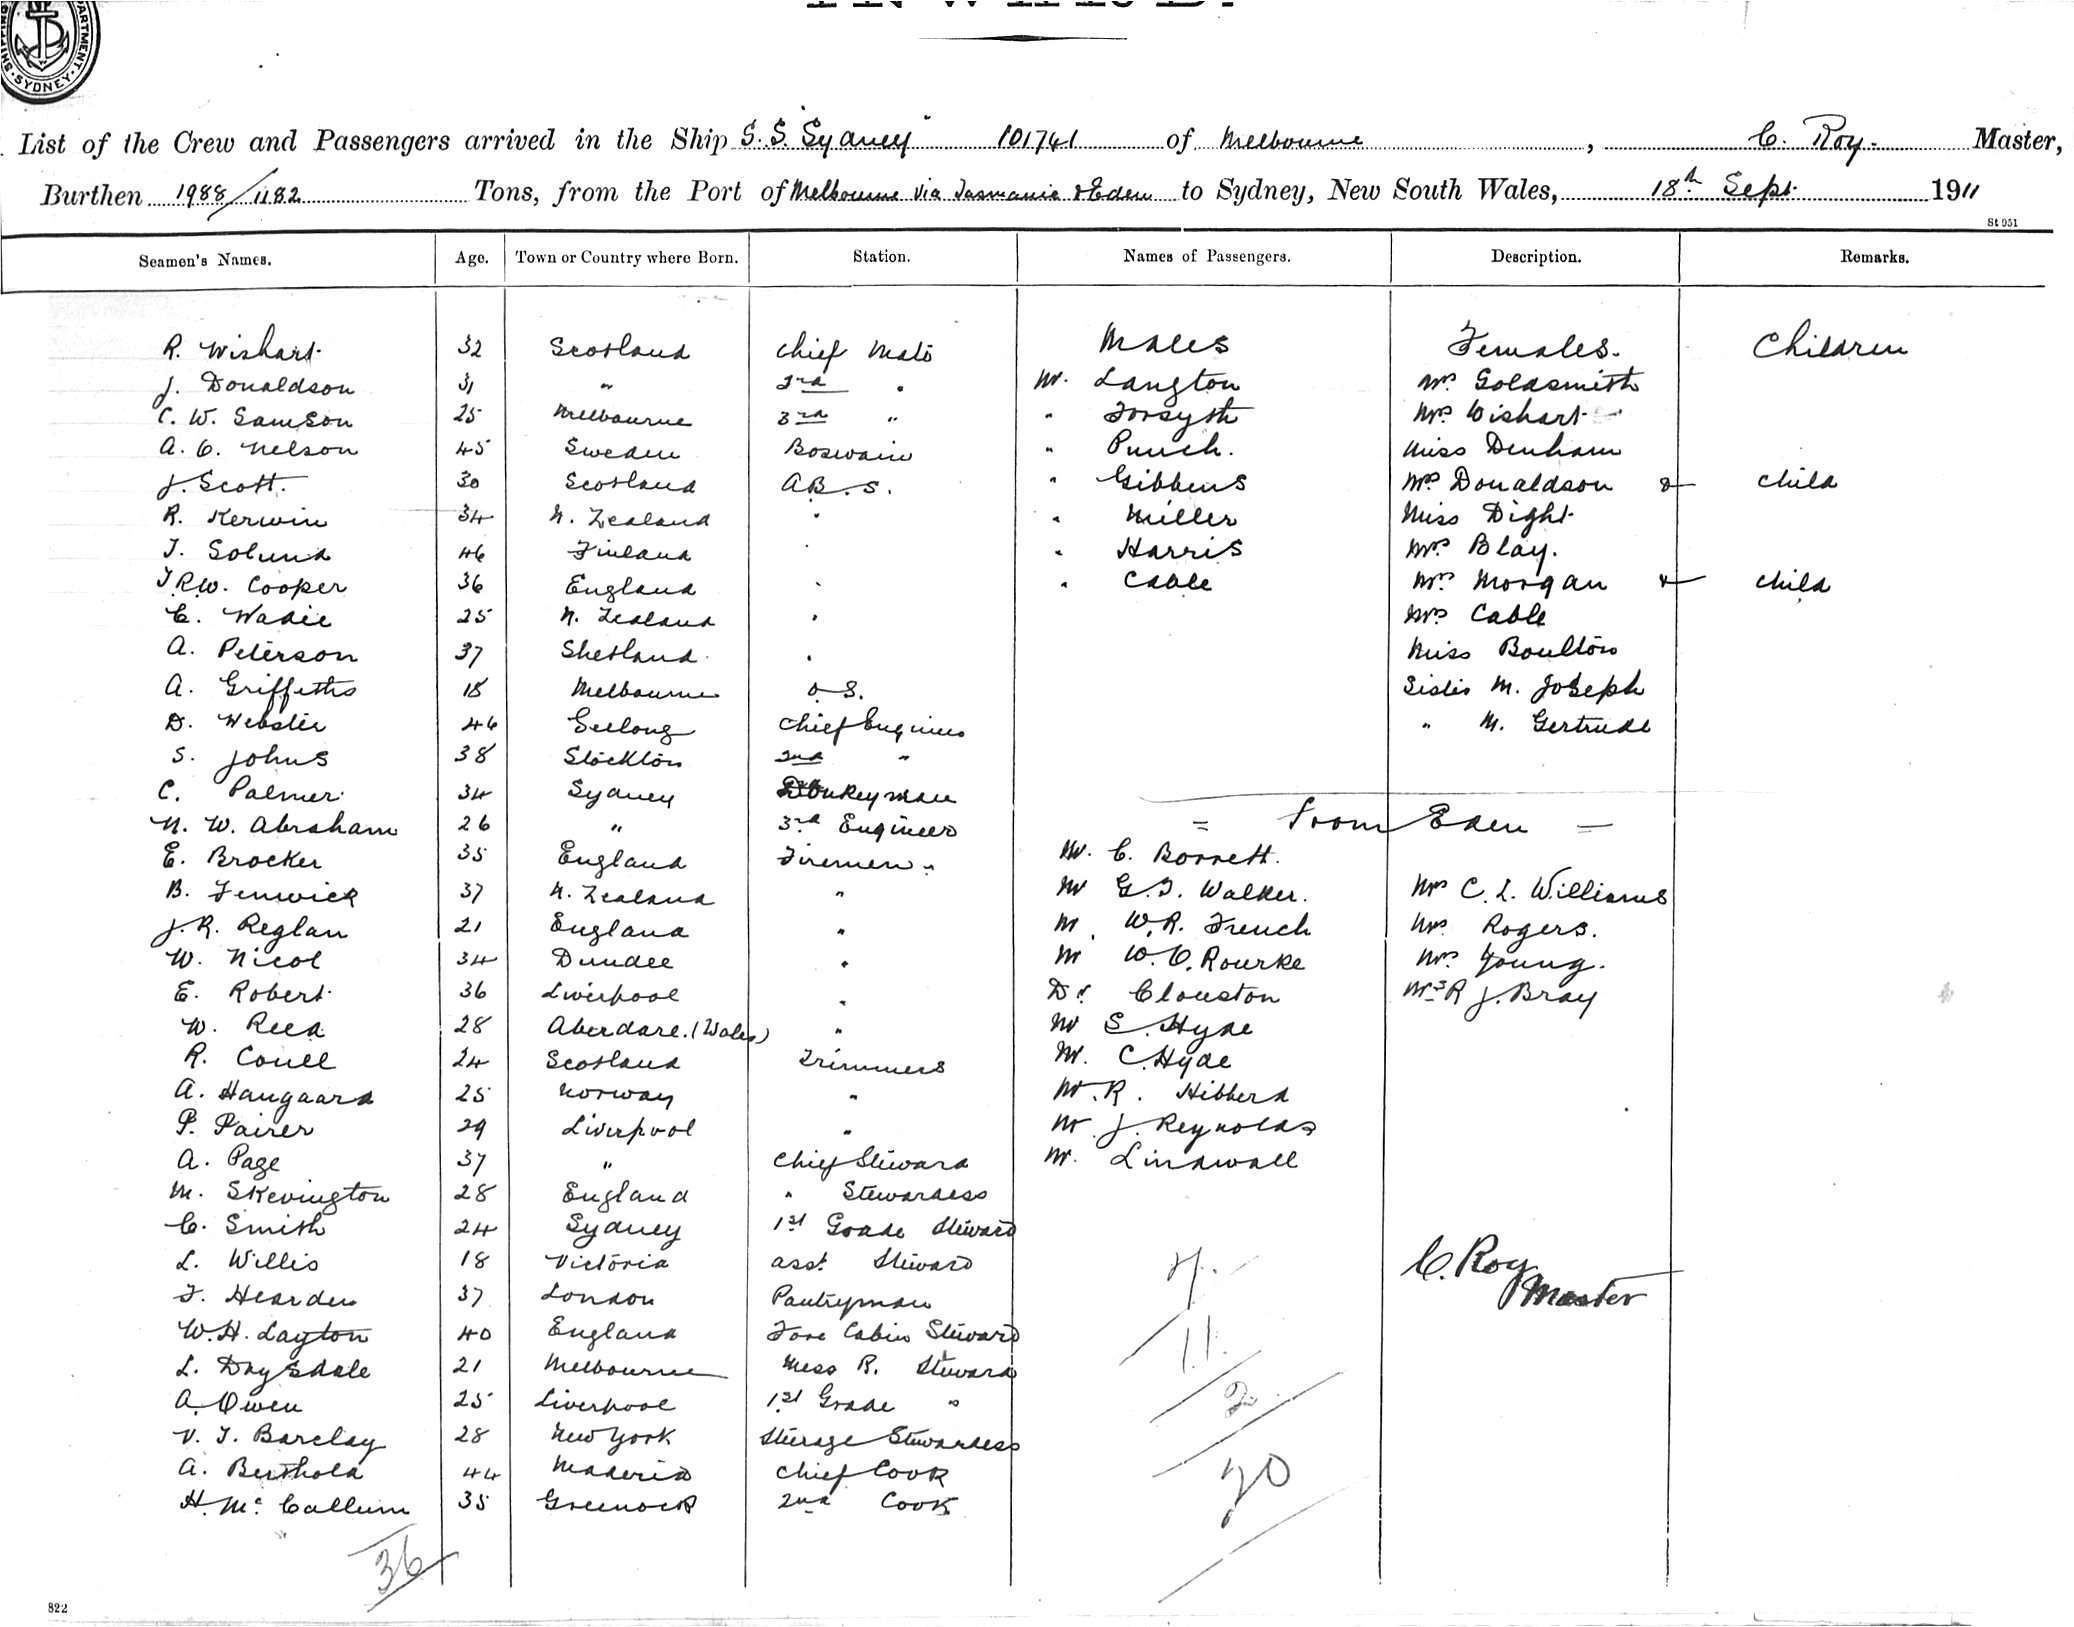 SHIPPING DEPARTMENT · SYDNEY ·
INWARD.
List of the Crew and Passengers arrived in the Ship S. S. "Sydney" 101741 of Melbourne, C. Roy. Master,
Burthen 1988/1182 Tons, from the Port of Melbourne via Tasmania & Eden to Sydney, New South Wales, 18th Sept. 1911
St 951
Seamen's Names. Age. Town or Country where Born. Station. Names of Passengers. Description. Remarks.
R. Wishart 32 Scotland Chief Mate Males Females. Children
J. Donaldson 31 " 2nd " Mr. Langton Mrs Goldsmith
C. W. Samson 25 Melbourne 3rd " " Forsyth Mrs Wishart
A. C. Nelson 45 Sweden Boswain " Punch. Miss Denham
J. Scott. 30 Scotland A.B.S. " Gibbens Mrs Donaldson & Child
R. Kerwin 34 N. Zealand " " Miller Miss Dight
T. Solund 46 Finland " " Harris Mrs Blay.
T.R.W. Cooper 36 England " " Cable Mrs Morgan & Child
C. Wadie 25 N. Zealand " Mrs Cable
A. Peterson 37 Shetland " Miss Boulton
A. Griffeths 18 Melbourne O.S. Sister M. Joseph
D. Webster 46 Geelong Chief Engineer " M. Gertrude
S. Johns 38 Stockton 2nd "
C. Palmer 34 Sydney Donkeyman
N. W. Abraham 26 " 3rd Engineer = From Eden =
E. Brocker 35 England Firemen " Mr. C. Borrett.
B. Fenwick 37 N. Zealand " Mr G. T. Walker. Mrs C. L. Williams
J. R. Reglan 21 England " Mr. W. R. French Mrs Rogers.
W. Nicol 34 Dundee " Mr W. O. Rourke Mrs Young.
E. Robert 36 Liverpool " Dr Clouston Mrs R J. Bray
W. Reed 28 Aberdare. (Wales) " Mr S. Hyde
R. Coull 24 Scotland Trimmers Mr. C. Hyde
A. Haugaard 25 Norway " Mr. R. Hibberd
P. Pairer 29 Liverpool " Mr. J. Reynolds
A. Page 37 " Chief Steward Mr. Lindwall
M. Skevington 28 England " Stewardess
C. Smith 24 Sydney 1st Grade Steward
L. Willis 18 Victoria asst. Steward 7. C. Roy
F. Hearden 37 London Pantryman Master
W. H. Layton 40 England Fore Cabin Steward 11
L. Drysdale 21 Melbourne Mess R. Steward
A. Owen 25 Liverpool 1st Grade " 2
V. T. Barclay 28 New York Steerage Stewardess
A. Berthold 44 Maderia Chief Cook 20
H. McCallum 35 Greenock 2nd Cook
36
822